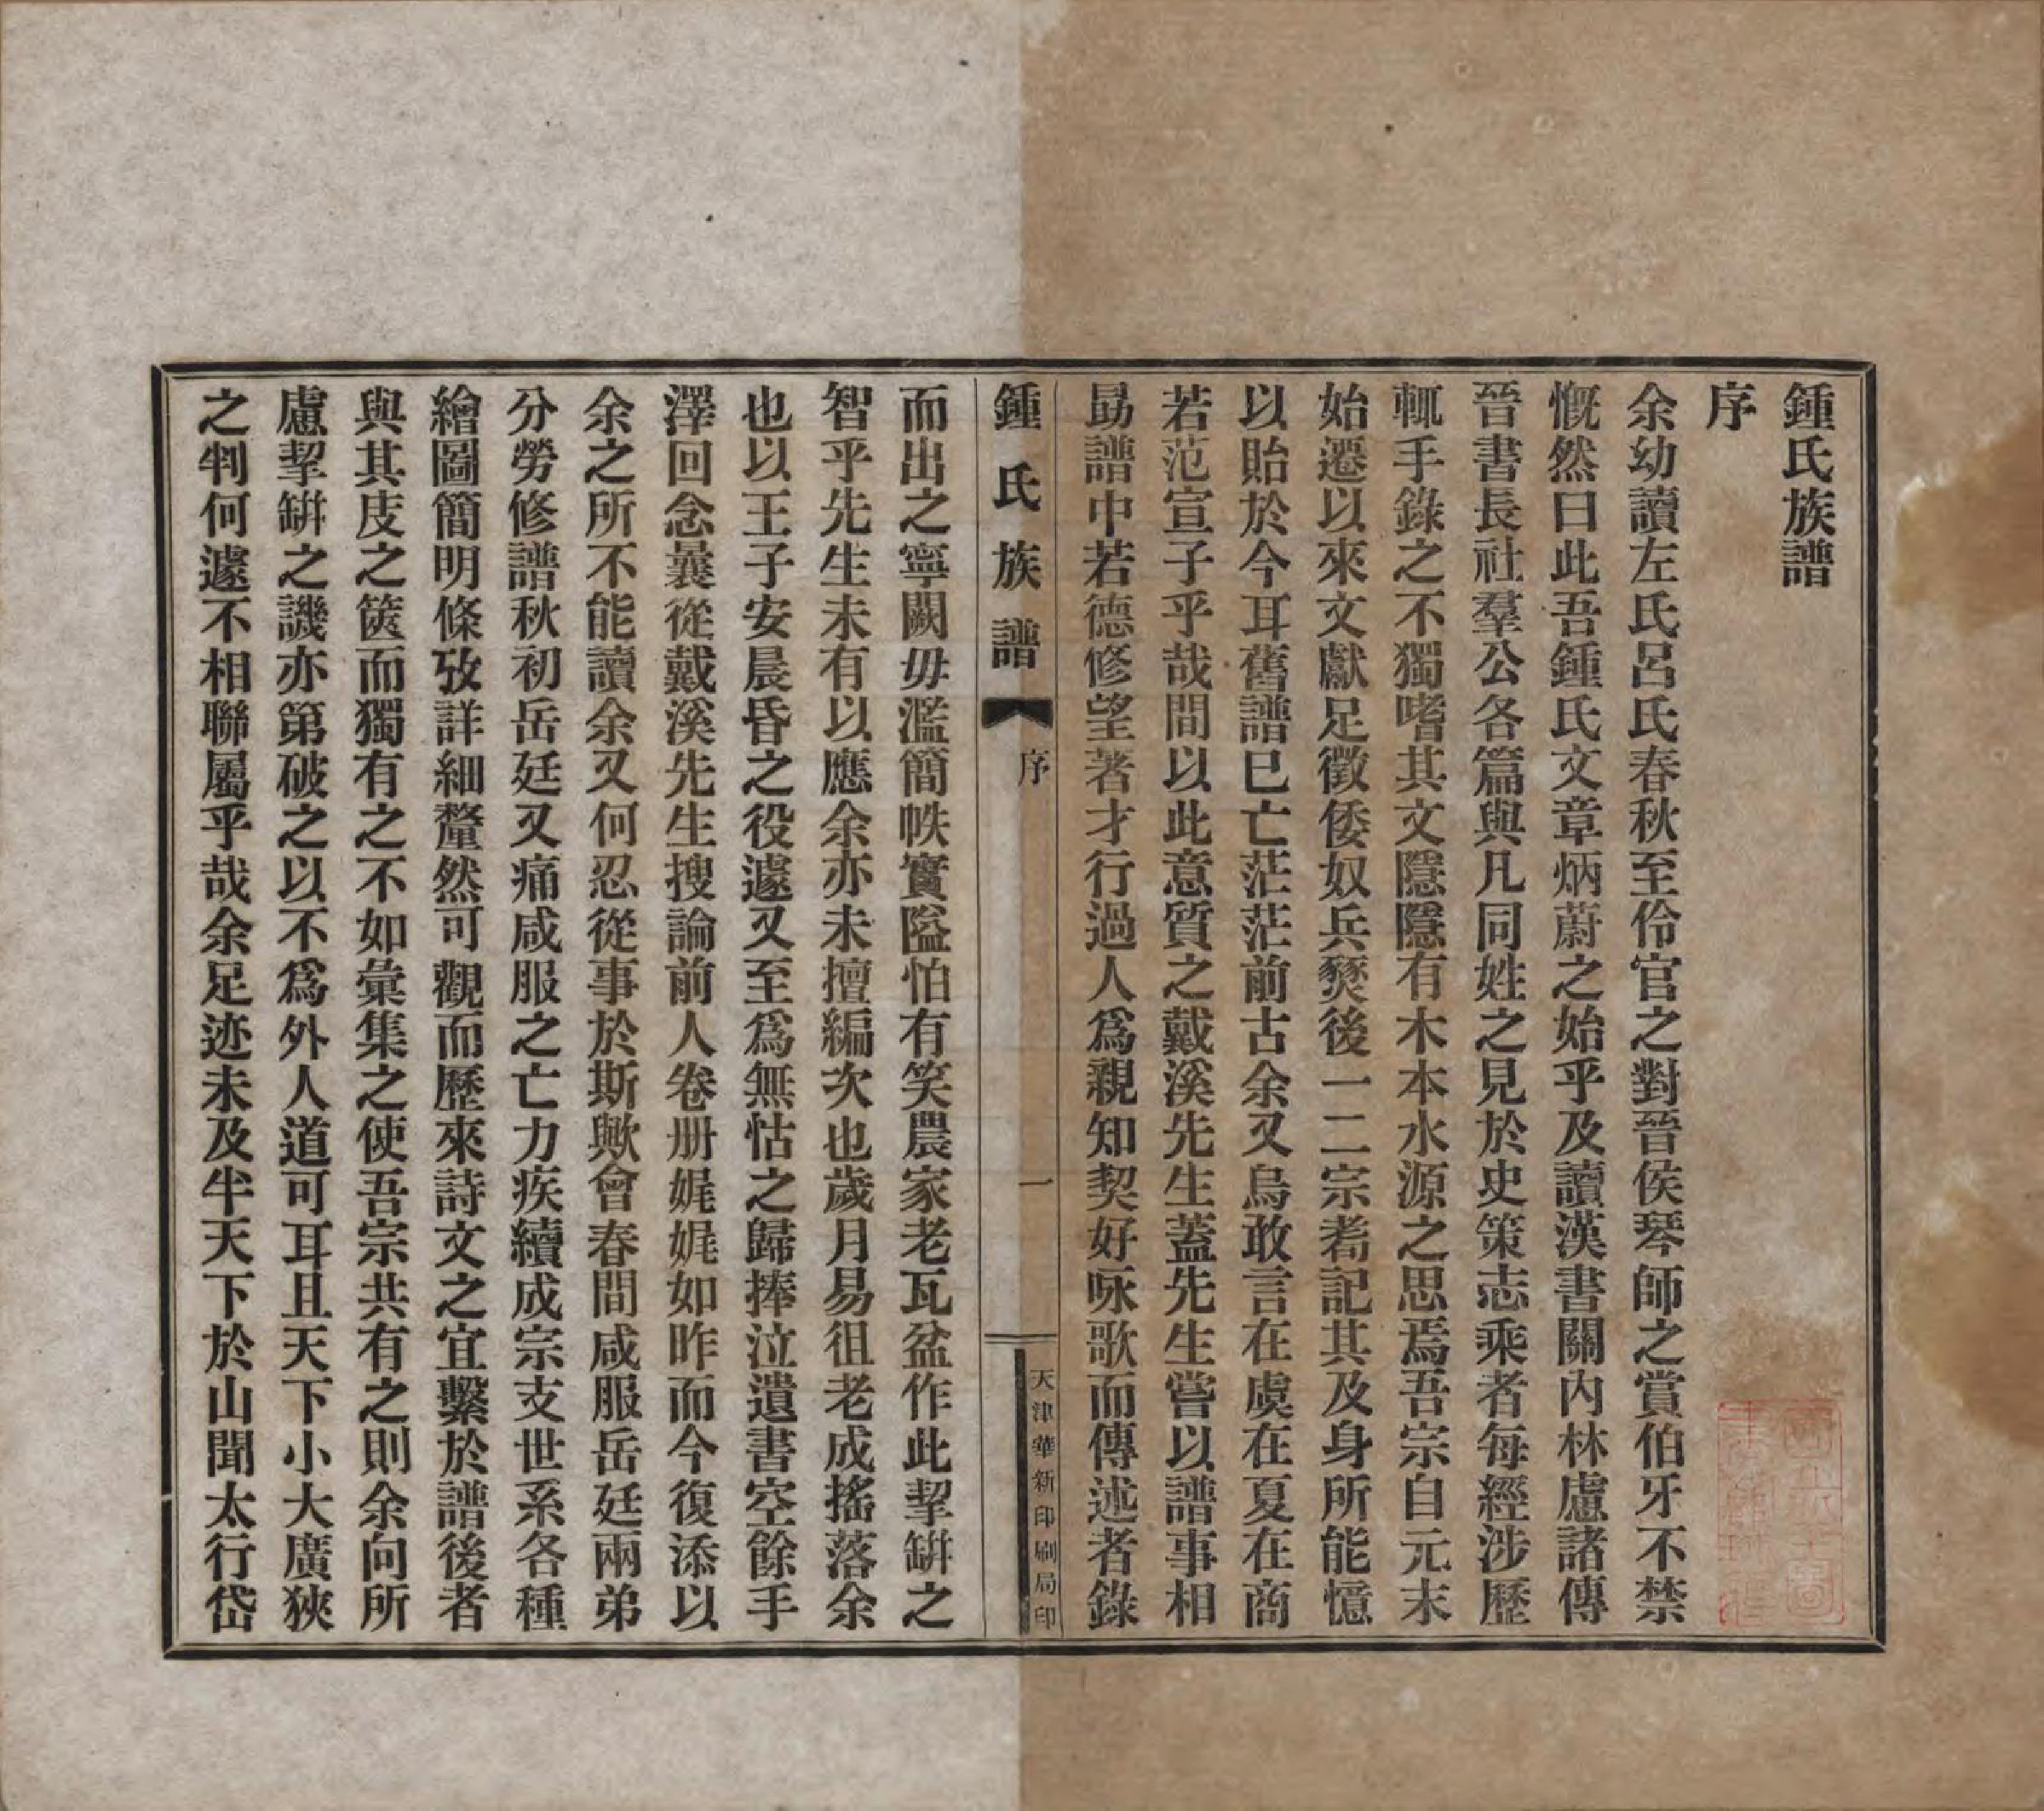 鍾氏族譜
序
余幼讀左氏呂氏春秋至伶官之對晉侯琴師之賞伯牙不禁
慨然曰此吾鍾氏文章炳蔚之始乎及讀漢書關內林慮諸傳
晉書長社羣公各篇與凡同姓之見於史策志乘者每經涉歷
輒手錄之不獨嗜其文隱隱有木本水源之思焉吾宗自元末
始遷以來文獻足徵倭奴兵燹後一二宗耈記其及身所能憶
以貽於今耳舊譜已亡茫茫前古余又烏敢言在虞在夏在商
若范宣子乎哉間以此意質之戴溪先生蓋先生嘗以譜事相
勗譜中若德修望著才行過人爲親知契好咏歌而傳述者錄
鍾氏族譜
序
一
天津華新印刷局印
而出之寧闕毋濫簡帙實隘怕有笑農家老瓦盆作此挈缾之
智乎先生未有以應余亦未擅編次也歲月易徂老成搖落余
也以王子安晨昏之役遽又至爲無怙之歸捧泣遺書空餘手
澤回念曩從戴溪先生搜論前人卷册娓娓如昨而今復添以
余之所不能讀余又何忍從事於斯歟會春間咸服岳廷兩弟
分勞修譜秋初岳廷又痛咸服之亡力疾續成宗支世系各種
繪圖簡明條攷詳細釐然可觀而歷來詩文之宜繫於譜後者
與其庋之篋而獨有之不如彙集之使吾宗共有之則余向所
慮挈缾之譏亦第破之以不爲外人道可耳且天下小大廣狹
之判何遽不相聯屬乎哉余足迹未及半天下於山聞太行岱